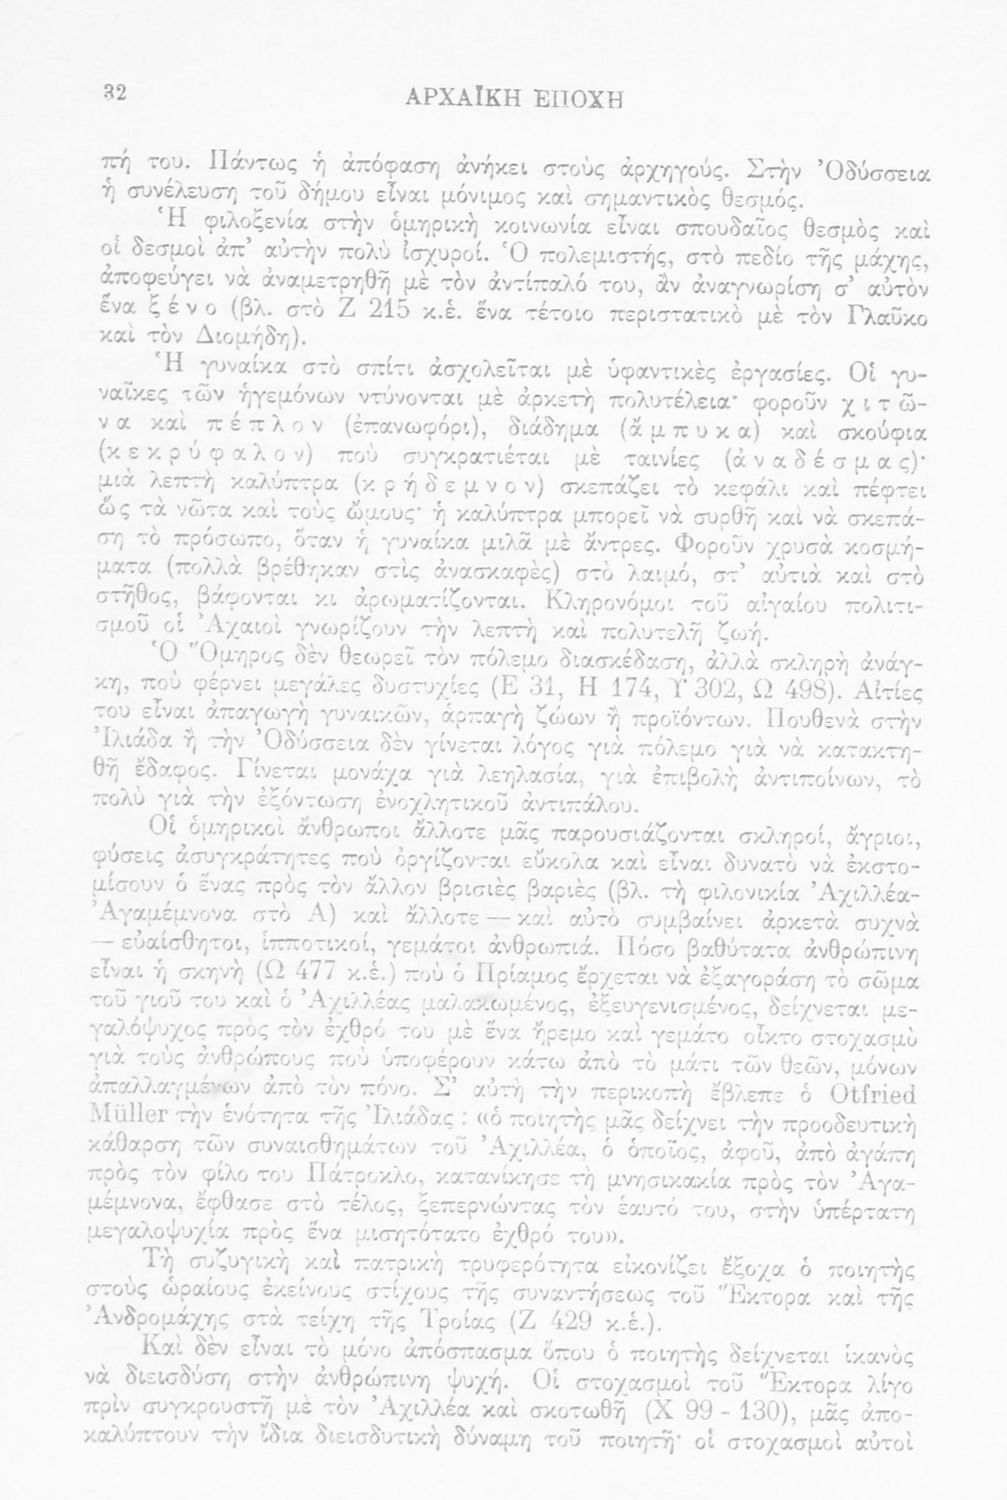 32
ΑΡΧΑΪΚΗ ΕΠΟΧΗ
πή του. Πάντως ἡ ἀπόφαση ἀνήκει στοὺς ἀρχηγούς. Στὴν Ὀδύσσεια
ἡ συνέλευση τοῦ δήμου εἶναι μόνιμος καὶ σημαντικὸς θεσμός.
Ἡ φιλοξενία στὴν ὁμηρικὴ κοινωνία εἶναι σπουδαῖος θεσμὸς καὶ
οἱ δεσμοὶ ἀπ’ αὐτὴν πολὺ ἰσχυροί. Ὁ πολεμιστής, στὸ πεδίο τῆς μάχης,
ἀποφεύγει νὰ ἀναμετρηθῆ μὲ τὸν ἀντίπαλό του, ἂν ἀναγνωρίση σ’ αὐτὸν
ἕνα ξ έ ν ο (βλ. στὸ Ζ 215 κ.ἑ. ἕνα τέτοιο περιστατικὸ μὲ τὸν Γλαῦκο
καὶ τὸν Διομήδη).
Ἡ γυναίκα στὸ σπίτι ἀσχολεῖται μὲ ὑφαντικὲς ἐργασίες. Οἱ γυ-
ναῖκες τῶν ἡγεμόνων ντύνονται μὲ ἀρκετὴ πολυτέλεια· φοροῦν χ ι τ ῶ-
ν α καὶ π έ π λ ο ν (ἐπανωφόρι), διάδημα (ἄ μ π υ κ α) καὶ σκούφια
(κ ε κ ρ ύ φ α λ ο ν) ποὺ συγκρατιέται μὲ ταινίες (ἀ ν α δ έ σ μ α ς)·
μιὰ λεπτὴ καλύπτρα (κ ρ ή δ ε μ ν ο ν) σκεπάζει τὸ κεφάλι καὶ πέφτει
ὣς τὰ νῶτα καὶ τοὺς ὤμους· ἡ καλύπτρα μπορεῖ νὰ συρθῆ καὶ νὰ σκεπά-
ση τὸ πρόσωπο, ὅταν ἡ γυναίκα μιλᾶ μὲ ἄντρες. Φοροῦν χρυσὰ κοσμή-
ματα (πολλὰ βρέθηκαν στὶς ἀνασκαφὲς) στὸ λαιμό, στ’ αὐτιὰ καὶ στὸ
στῆθος, βάφονται κι ἀρωματίζονται. Κληρονόμοι τοῦ αἰγαίου πολιτι-
σμοῦ οἱ Ἀχαιοὶ γνωρίζουν τὴν λεπτὴ καὶ πολυτελῆ ζωή.
Ὁ Ὅμηρος δὲν θεωρεῖ τὸν πόλεμο διασκέδαση, ἀλλὰ σκληρὴ ἀνάγ-
κη, ποὺ φέρνει μεγάλες δυστυχίες (Ε 31, Η 174, Υ 302, Ω 498). Αἰτίες
του εἶναι ἀπαγωγὴ γυναικῶν, ἁρπαγὴ ζώων ἢ προϊόντων. Πουθενὰ στὴν
Ἰλιάδα ἢ τὴν Ὀδύσσεια δὲν γίνεται λόγος γιὰ πόλεμο γιὰ νὰ κατακτη-
θῆ ἔδαφος. Γίνεται μονάχα γιὰ λεηλασία, γιὰ ἐπιβολὴ ἀντιποίνων, τὸ
πολὺ γιὰ τὴν ἐξόντωση ἐνοχλητικοῦ ἀντιπάλου.
Οἱ ὁμηρικοὶ ἄνθρωποι ἄλλοτε μᾶς παρουσιάζονται σκληροί, ἄγριοι,
φύσεις ἀσυγκράτητες ποὺ ὀργίζονται εὔκολα καὶ εἶναι δυνατὸ νὰ ἐκστο-
μίσουν ὁ ἕνας πρὸς τὸν ἄλλον βρισιὲς βαριὲς (βλ. τὴ φιλονικία Ἀχιλλέα-
Ἀγαμέμνονα στὸ Α) καὶ ἄλλοτε — καὶ αὐτὸ συμβαίνει ἀρκετὰ συχνὰ
— εὐαίσθητοι, ἱπποτικοί, γεμάτοι ἀνθρωπιά. Πόσο βαθύτατα ἀνθρώπινη
εἶναι ἡ σκηνὴ (Ω 477 κ.ἑ.) ποὺ ὁ Πρίαμος ἔρχεται νὰ ἐξαγοράση τὸ σῶμα
τοῦ γιοῦ του καὶ ὁ Ἀχιλλέας μαλακωμένος, ἐξευγενισμένος, δείχνεται με-
γαλόψυχος πρὸς τὸν ἐχθρό του μὲ ἕνα ἤρεμο καὶ γεμάτο οἶκτο στοχασμὸ
γιὰ τοὺς ἀνθρώπους ποὺ ὑποφέρουν κάτω ἀπὸ τὸ μάτι τῶν θεῶν, μόνων
ἀπαλλαγμένων ἀπὸ τὸν πόνο. Σ’ αὐτὴ τὴν περικοπὴ ἔβλεπε ὁ Otfried
Müller τὴν ἑνότητα τῆς Ἰλιάδας : «ὁ ποιητὴς μᾶς δείχνει τὴν προοδευτικὴ
κάθαρση τῶν συναισθημάτων τοῦ Ἀχιλλέα, ὁ ὁποῖος, ἀφοῦ, ἀπὸ ἀγάπη
πρὸς τὸν φίλο του Πάτροκλο, κατανίκησε τὴ μνησικακία πρὸς τὸν Ἀγα-
μέμνονα, ἔφθασε στὸ τέλος, ξεπερνώντας τὸν ἑαυτό του, στὴν ὑπέρτατη
μεγαλοψυχία πρὸς ἕνα μισητότατο ἐχθρό του».
Τὴ συζυγικὴ καὶ πατρικὴ τρυφερότητα εἰκονίζει ἔξοχα ὁ ποιητὴς
στοὺς ὡραίους ἐκείνους στίχους τῆς συναντήσεως τοῦ Ἕκτορα καὶ τῆς
Ἀνδρομάχης στὰ τείχη τῆς Τροίας (Ζ 429 κ.ἑ.).
Καὶ δὲν εἶναι τὸ μόνο ἀπόσπασμα ὅπου ὁ ποιητὴς δείχνεται ἱκανὸς
νὰ διεισδύση στὴν ἀνθρώπινη ψυχή. Οἱ στοχασμοὶ τοῦ Ἕκτορα λίγο
πρὶν συγκρουστῆ μὲ τὸν Ἀχιλλέα καὶ σκοτωθῆ (Χ 99 - 130), μᾶς ἀπο-
καλύπτουν τὴν ἴδια διεισδυτικὴ δύναμη τοῦ ποιητῆ· οἱ στοχασμοὶ αὐτοὶ